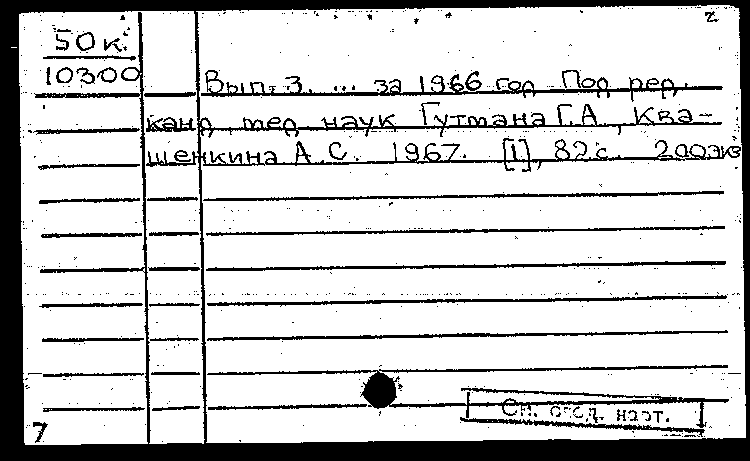 2
50 к.
10300
Вып. 3. ... за 1966 год Под ред.
канд. мед. наук Гутмана Г.А., Ква-
шенкина А.С. 1967. [1], 82 с. 200экз
См. отсд. карт.
7